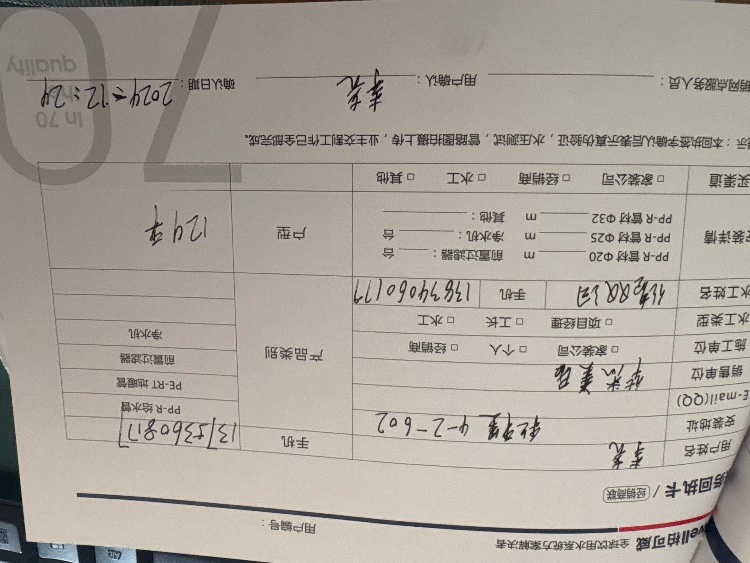 vell柏可威 全球饮用水系统方案解决者
用户编号：
务回执卡 / 经销商联
用户姓名 李亮 手机 1375360817
安装地址 4-2-602
E-mail(QQ)
销售单位 华派美居
施工单位 □ 家装公司 □ 个人 □ 经销商
水工类型 □ 项目经理 □ 工长 □ 水工
水工姓名 手机 13634060177
产品类别 PP-R 给水管
PE-RT 地暖管
前置过滤器
净水机
安装详情 PP-R 管材 Φ20 m 前置过滤器： 台
PP-R 管材 Φ25 m 净水机： 台
PP-R 管材 Φ32 m 其他：
户型 124平
买渠道 □ 家装公司 □ 经销商 □ 水工 □ 其他
示：本回执签字确认后表示真伪验证，水压测试，管路图拍摄上传，业主交割工作已全部完成。
销网点服务人员： 用户确认：李亮 确认日期：2024-12-24
70
In 70
quality